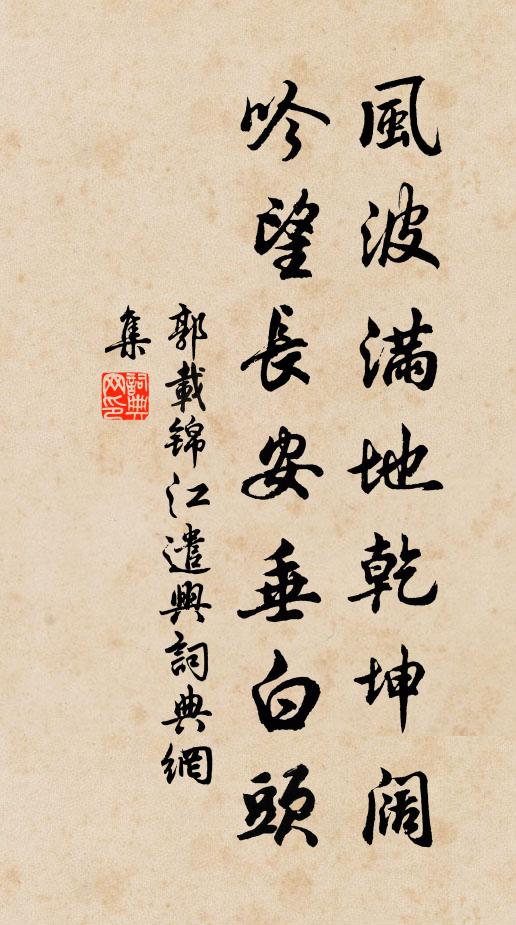 風波滿地乾坤闊
吟望長安垂白頭
郭載錦江遣興詞典網
集
詞典
网印